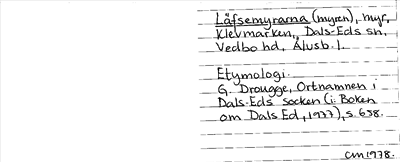 Låfsemyrarna (myren), myr,
Klevmarken, Dals-Eds sn,
Vedbo hd, Älvsb. l.
Etymologi.
G. Drougge, Ortnamnen i
Dals-Eds socken (i: Boken
om Dals Ed, 1977), s. 658.
cm 1978.